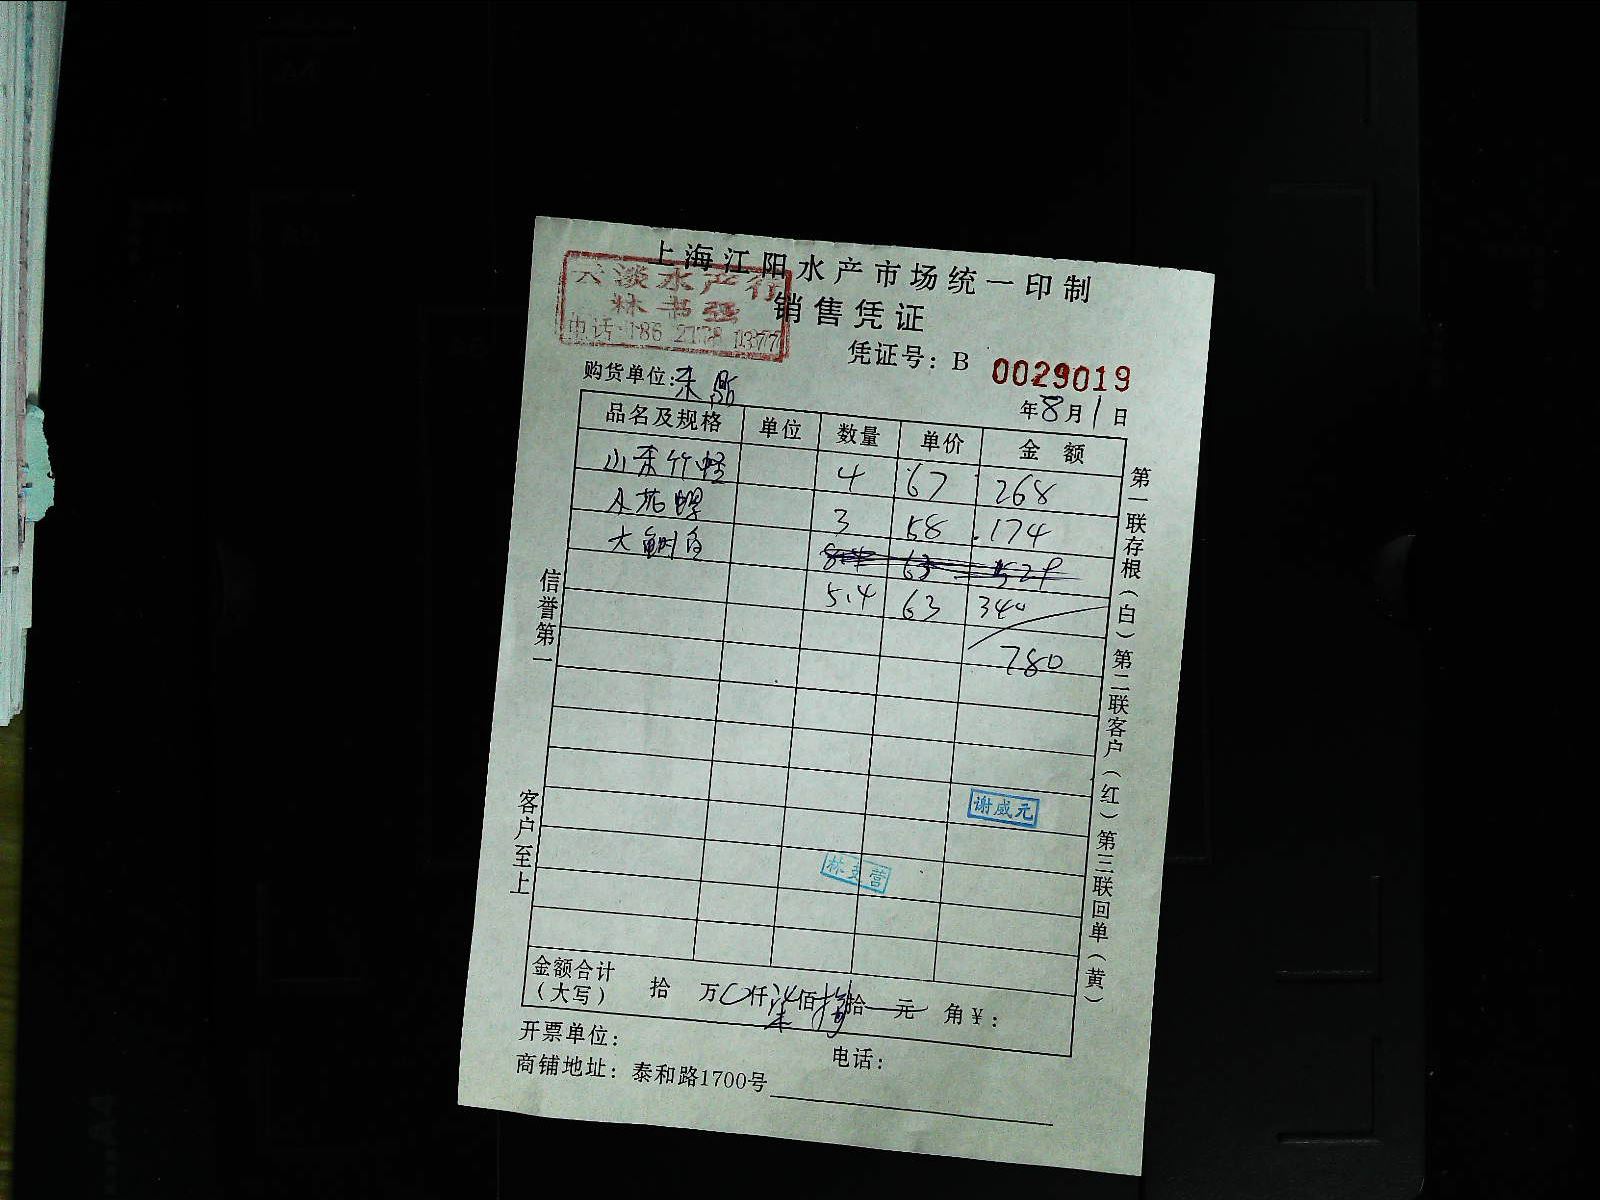 上海江阳水产市场统一印制
销售凭证
淡水产行
林书强
电话:186 2178 1377
凭证号: B 0029019
购货单位:
年8月1日
品名及规格 单位 数量 单价 金额
山东竹蛏 4 67 268
花螺 3 58 174
大鲥鱼
5.4 63 340
780
谢威元
林 营
金额合计
(大写) 拾 万0仟柒佰捌拾一元 角¥:
开票单位: 电话:
商铺地址: 泰和路1700号
信誉第一 客户至上
第一联存根(白)第二联客户(红)第三联回单(黄)